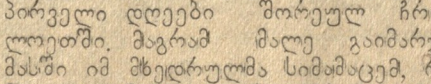 პირველი დღეები შორეულ ჩრ
ლოეთში. მაგრამ მალე გაიმარჯ
მასში იმ მხედრულმა სიმამაცემ,